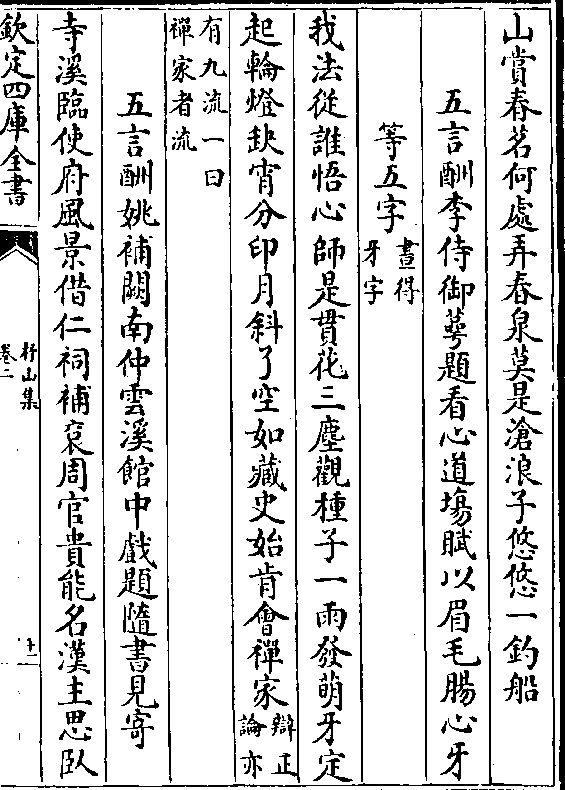 山賞春茗何處弄春泉莫是滄浪子悠悠一釣船
五言酬李侍御蕚題看心道塲賦以眉毛腸心牙
等五字
畫得
牙字
我法從誰悟心師是貫花三塵觀種子一雨發萌牙定
起輪燈缺宵分印月斜了空如藏史始肯會禪家
辯正
論亦
有九流一曰
禪家者流
五言酬姚補闕南仲雲溪館中戲題隨書見寄
寺溪臨使府風景借仁祠補衮周官貴能名漢主思臥
欽定四庫全書
杼山集
卷二
十二